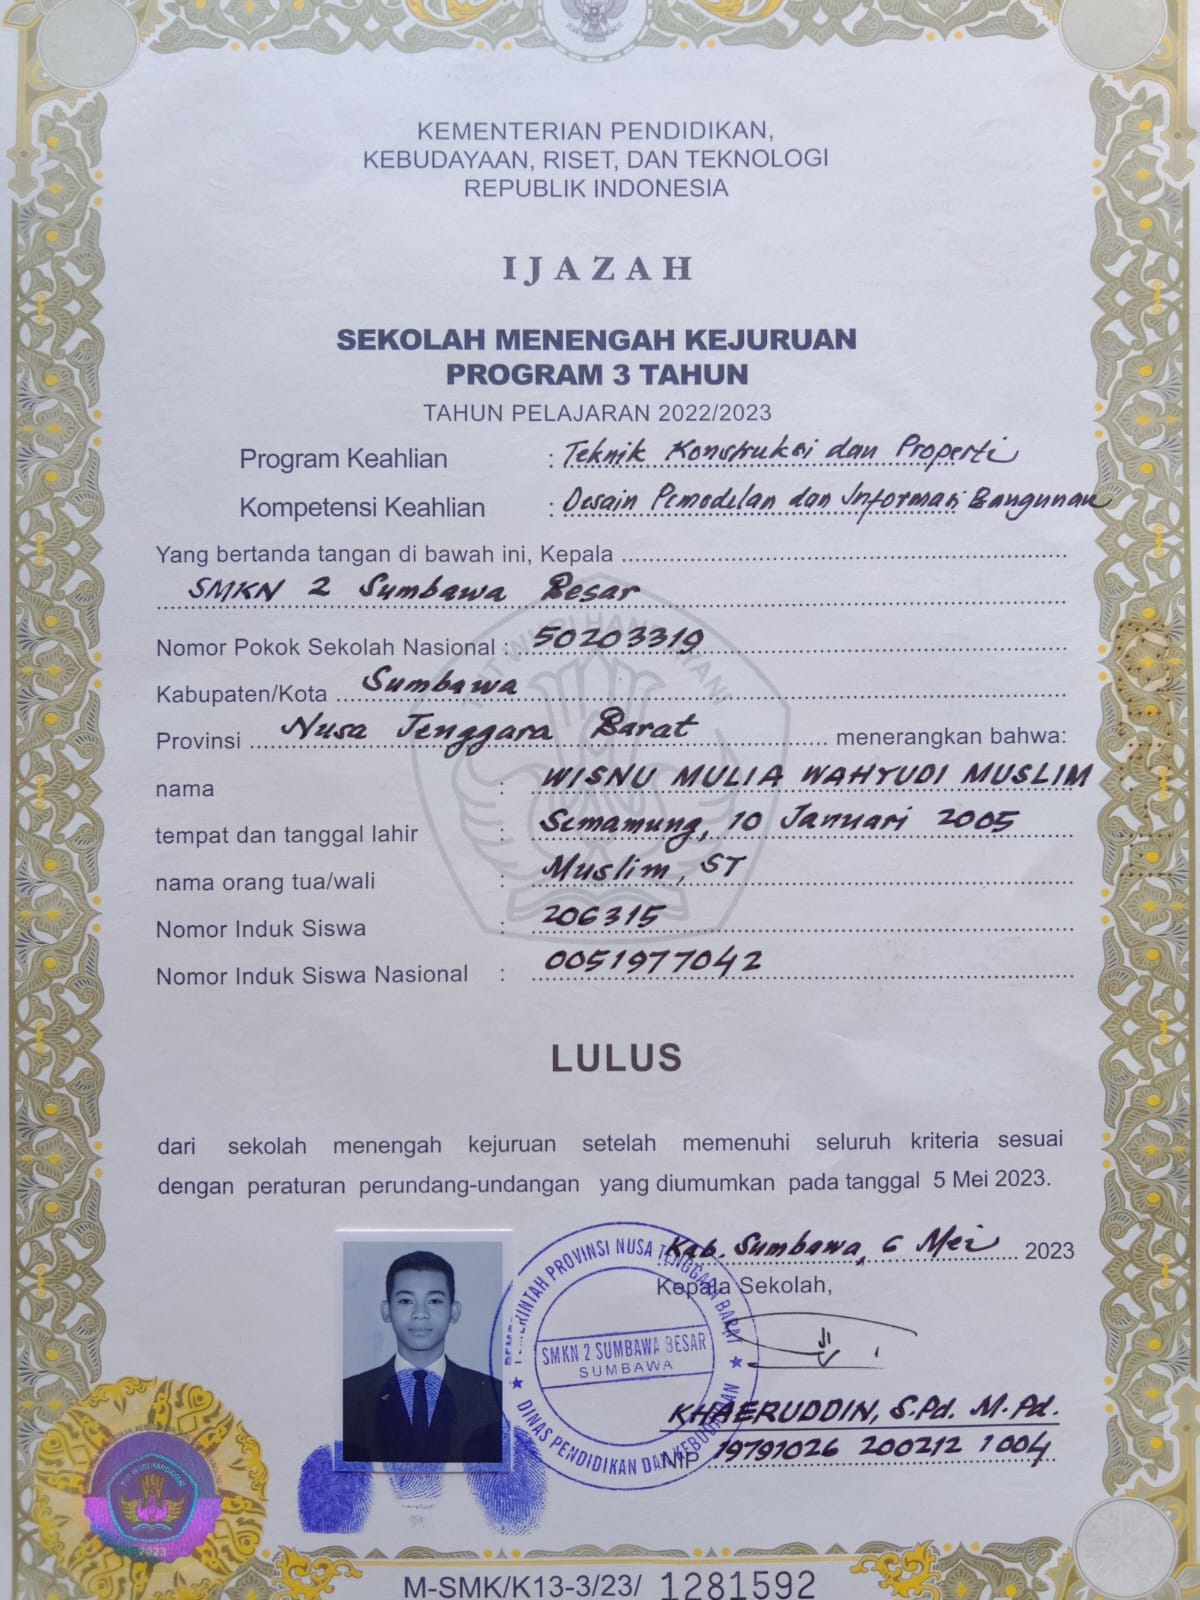 KEMENTERIAN PENDIDIKAN,
KEBUDAYAAN, RISET, DAN TEKNOLOGI
REPUBLIK INDONESIA
IJAZAH
SEKOLAH MENENGAH KEJURUAN
PROGRAM 3 TAHUN
TAHUN PELAJARAN 2022/2023
Program Keahlian : Teknik Konstruksi dan Properti
Kompetensi Keahlian : Desain Pemodelan dan Informasi Bangunan
Yang bertanda tangan di bawah ini, Kepala
SMKN 2 Sumbawa Besar
Nomor Pokok Sekolah Nasional : 50203319
Kabupaten/Kota Sumbawa
Provinsi Nusa Tenggara Barat menerangkan bahwa:
nama : WISNU MULIA WAHYUDI MUSLIM
tempat dan tanggal lahir : Semamung, 10 Januari 2005
nama orang tua/wali : Muslim, ST
Nomor Induk Siswa : 206315
Nomor Induk Siswa Nasional : 0051977042
TUT WURI HANDAYANI
LULUS
dari sekolah menengah kejuruan setelah memenuhi seluruh kriteria sesuai
dengan peraturan perundang-undangan yang diumumkan pada tanggal 5 Mei 2023.
Kab. Sumbawa, 6 Mei 2023
Kepala Sekolah,
PEMERINTAH PROVINSI NUSA TENGGARA BARAT
SMKN 2 SUMBAWA BESAR
SUMBAWA
DINAS PENDIDIKAN DAN KEBUDAYAAN
KHAERUDDIN, S.Pd. M.Pd.
NIP 19791026 200212 1 004
TUT WURI HANDAYANI
2023
M-SMK/K13-3/23/ 1281592